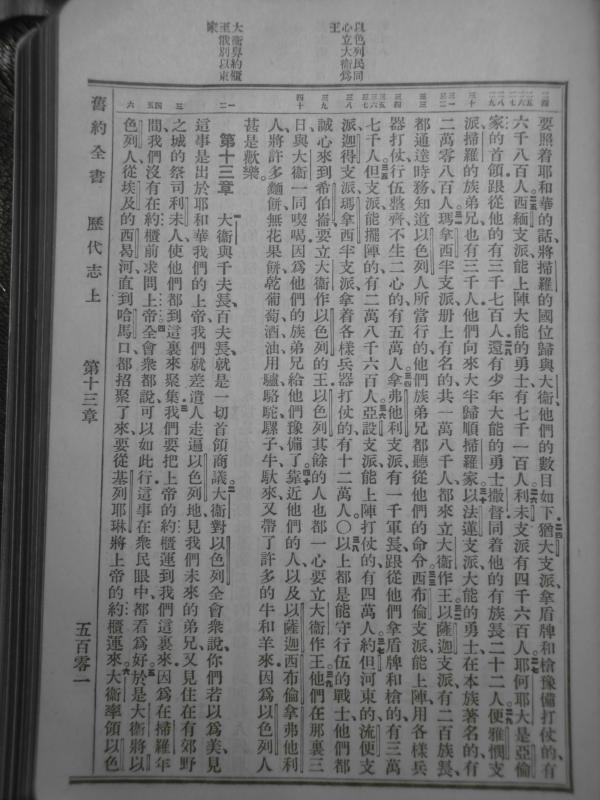 以色列民同
心立大衛爲
王
大衛舁約櫃
至俄別以東
家
要照着耶和華的話將掃羅的國位歸與大衛他們的數目如下猶大支派拿盾牌和槍豫備打仗的有
六千八百人西緬支派能上陣大能的勇士有七千一百人利未支派有四千六百人耶何耶大是亞倫
家的首領跟從他的有三千七百人還有少年大能的勇士撒督同着他的有族長二十二人便雅憫支
派掃羅的族弟兄也有三千人他們向來大半歸順掃羅家以法蓮支派大能的勇士在本族著名的有
二萬零八百人瑪拿西半支派册上有名的共一萬八千人都來立大衛作王以薩迦支派有二百族長
都通達時務知道以色列人所當行的他們族弟兄都聽從他們的命令西布倫支派能上陣用各樣兵
器打仗行伍整齊不生二心的有五萬人拿弗他利支派有一千軍長跟從他們拿盾牌和槍的有三萬
七千人但支派能擺陣的有二萬八千六百人亞設支派能上陣打仗的有四萬人約但河東的流便支
派迦得支派瑪拿西半支派拿着各樣兵器打仗的有十二萬人○以上都是能守行伍的戰士他們都
誠心來到希伯崙要立大衛作以色列的王以色列其餘的人也都一心要立大衛作王他們在那裏三
日與大衛一同喫喝因爲他們的族弟兄給他們豫備了靠近他們的人以及以薩迦西布倫拿弗他利
人將許多麵餅無花果餅乾葡萄酒油用驢駱駝騾子牛馱來又帶了許多的牛和羊來因爲以色列人
甚是歡樂
第十三章 大衛與千夫長百夫長就是一切首領商議大衛對以色列全會衆說你們若以爲美見
這事是出於耶和華我們的上帝我們就差遣人走遍以色列地見我們未來的弟兄又見住在有郊野
之城的祭司利未人使他們都到這裏來聚集我們要把上帝的約櫃運到我們這裏來因爲在掃羅年
間我們沒有在約櫃前求問上帝全會衆都說可以如此行這事在衆民眼中都看爲好於是大衛將以
色列人從埃及的西曷河直到哈馬口都招聚了來要從基列耶琳將上帝的約櫃運來大衛率領以色
舊約全書 歷代志上 第十三章 五百零一